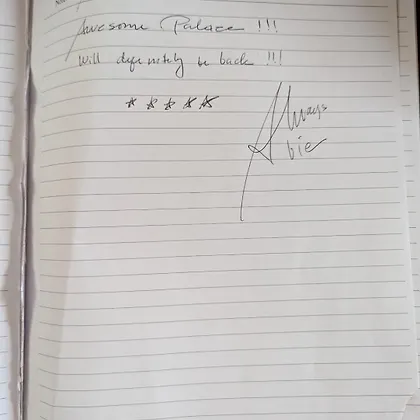 Awesome Palace !!!
Will definetely be back !!!
☆ ☆ ☆ ☆ ☆
Always
bie